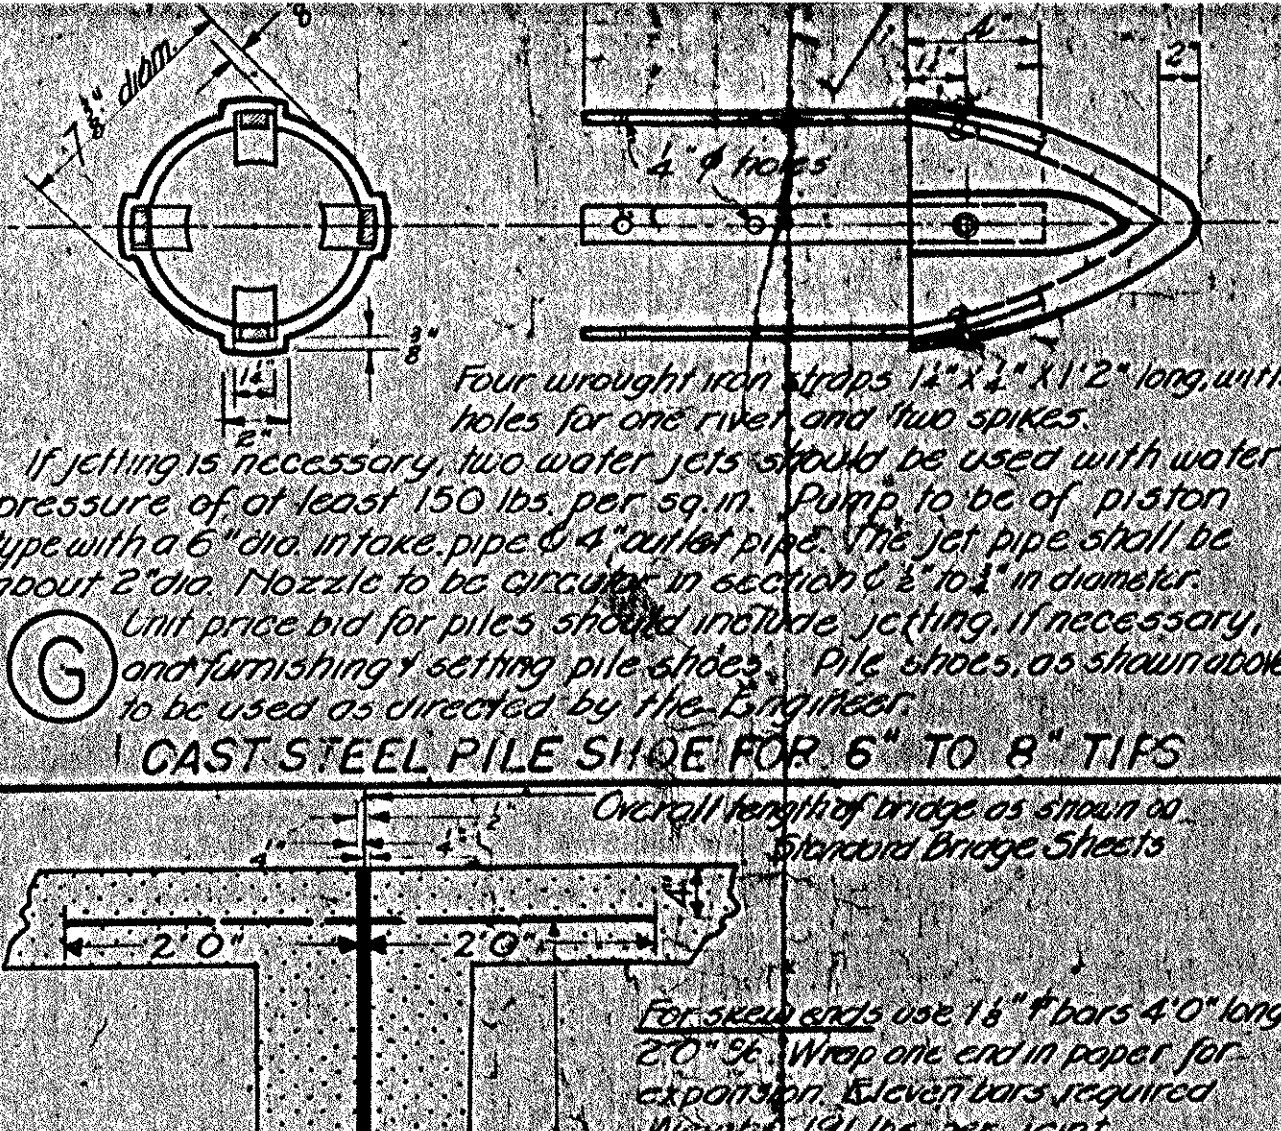 7 3/8" diam.
8
4"
1 1/4"
2"
1/4" φ holes
3/8"
1 1/4"
2"
Four wrought iron straps 1 1/4" X 1/4" X 1'2" long, with
holes for one rivet and two spikes.
If jetting is necessary, two water jets should be used with water
pressure of at least 150 lbs. per sq. in. Pump to be of piston
type with a 6" dia. intake pipe & 4" outlet pipe. The jet pipe shall be
about 2" dia. Nozzle to be circular in section & 1/2" to in diameter.
G
Unit price bid for piles should include jetting, if necessary,
and furnishing & setting pile shoes. Pile shoes, as shown above
to be used as directed by the Engineer.
CAST STEEL PILE SHOE FOR 6" TO 8" TIPS
Overall length of bridge as shown on
Standard Bridge Sheets
1/2"
1/4"
1/4"
4"
2'0"
2'0"
For skew ends use 1 1/8" φ bars 4'0" long
2'0" %. Wrap one end in paper for
expansion. Eleven bars required
191 lbs. per joint